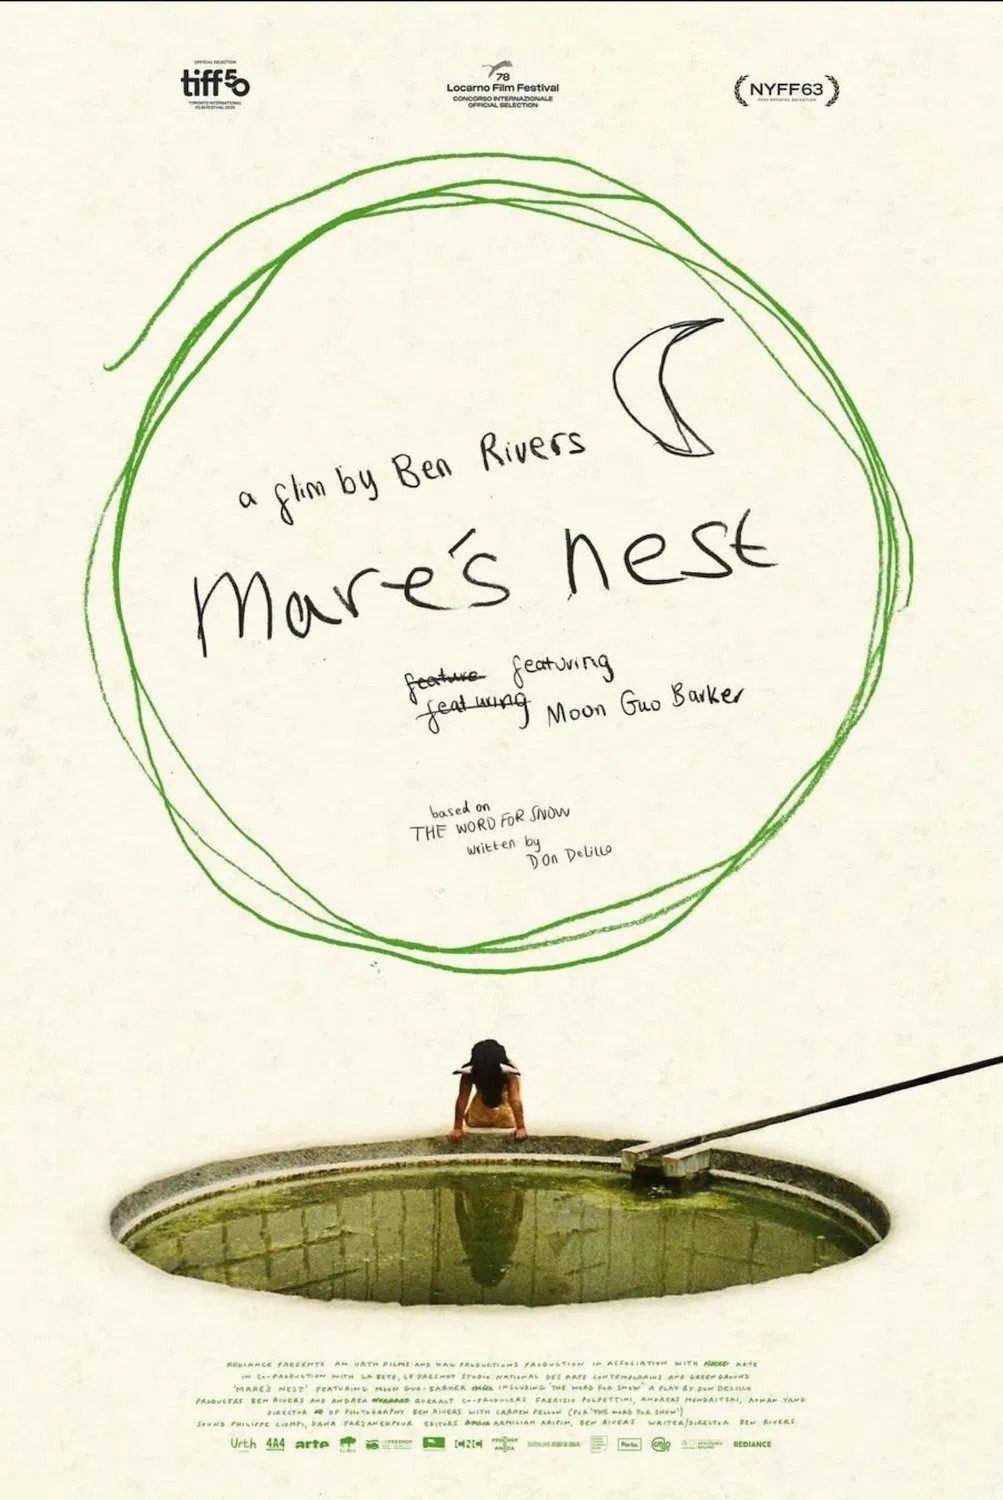 OFFICIAL SELECTION
tiff50
TORONTO INTERNATIONAL
FILM FESTIVAL 2025
78
Locarno Film Festival
CONCORSO INTERNAZIONALE
OFFICIAL SELECTION
NYFF63
2025 OFFICIAL SELECTION
a film by Ben Rivers
Mare's nest
feature featuring
featuring Moon Guo Barker
based on
THE WORD FOR SNOW
written by
Don DeLillo
REDIANCE PRESENTS AN URTH FILMS AND PRODUCTIONS PRODUCTION IN ASSOCIATION WITH ARTE
IN CO-PRODUCTION WITH LA BETE, LE FRESNOY STUDIO NATIONAL DES ARTS CONTEMPORAINS AND GREENGROUND
'MARE'S NEST' FEATURING MOON GUO-BARKER INCLUDING 'THE WORD FOR SNOW' A PLAY BY DON DELILLO
PRODUCERS BEN RIVERS AND ANDREA CO-PRODUCERS FABRIZIO POLPETTINI, ANDREAS MENDRITZKI, AONAN YANG
DIRECTOR OF PHOTOGRAPHY BEN RIVERS WITH CARMEN PELLON (FOR 'THE WORD FOR SNOW')
SOUND PHILIPPE CIOMPI, DANA FARZANEHPOUR EDITORS ARMILIAH ARIPIN, BEN RIVERS WRITER/DIRECTOR BEN RIVERS
Urth 4A4 arte CNC REDIANCE